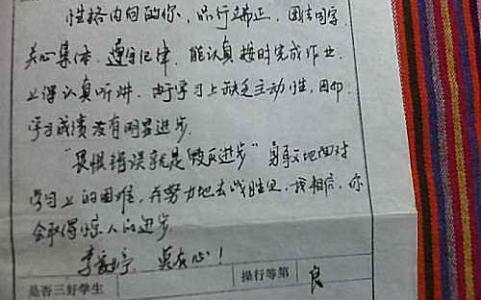 性格内向的你，品行端正，团结同学，
关心集体，遵守纪律，能认真按时完成作业，
上课认真听讲，由于学习上缺乏主动性，因而
学习成绩没有明显进步。
“畏惧错误就是毁灭进步”勇敢地面对
学习上的困难，并努力地去战胜它，我相信，你
会取得惊人的进步
李 莫灰心！
是否三好学生 操行等第 良